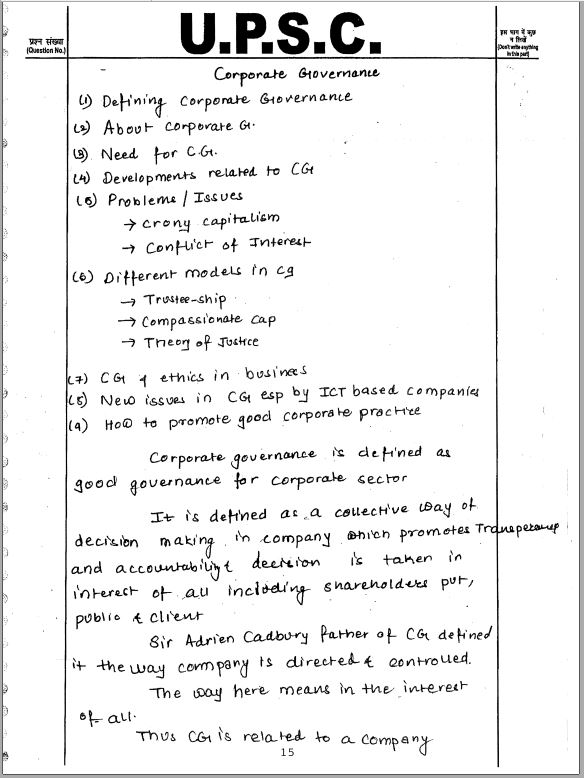 प्रश्न संख्या
(Question No.)
U.P.S.C.
इस भाग में कुछ
न लिखें
(Don't write anything
in this part)
Corporate Governance
(1) Defining Corporate Governance
(2) About Corporate G.
(3) Need for C.G.
(4) Developments related to CG
(5) Problems / Issues
→ Crony capitalism
→ Conflict of Interest
(6) Different models in cg
→ Trustee-ship
→ Compassionate cap
→ Theory of Justice
(7) CG & ethics in business
(8) New issues in CG esp by ICT based companies
(9) How to promote good corporate practice
Corporate governance is defined as
good governance for corporate sector
It is defined as a collective way of
decision making in company which promotes
and accountability & decision is taken in
interest of all including shareholders
public & client
Sir Adrien Cadbury father of CG defined
it the way company is directed & controlled.
The way here means in the interest
of all.
Thus CG is related to a company
15